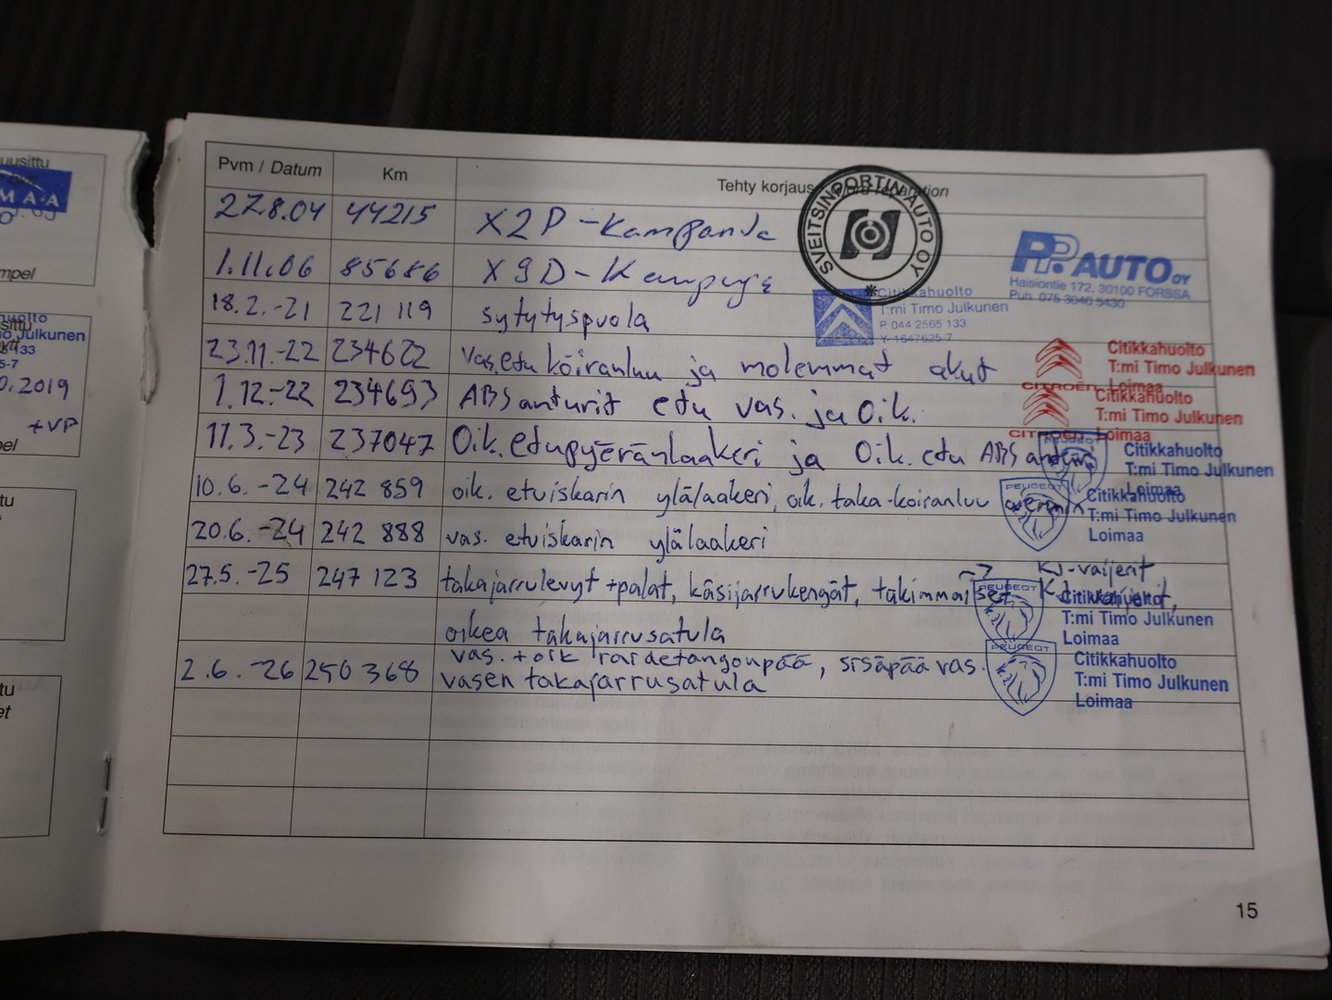 uusittu
M A-A
mpel
huolto
sittu
o Julkunen
5-7
0.2019
+VP
pel
tu
t
tu
et
Pvm / Datum Km Tehty korjaus
SVEITSINPORTIN AUTO OY
27.8.04 44215 X2P-Kampanja
PP. AUTO OY
Haisiontie 172, 30100 FORSSA
Puh. 075 3040 5430
1.11.06 85686 X9D-
Citikkahuolto
T:mi Timo Julkunen
P. 044 2565 133
Y- 1647625-7
18.2.-21 221 119 sytytyspuola
23.11.-22 234622 vas.etu koiranluu ja molemmat akut
Citikkahuolto
T:mi Timo Julkunen
CITROËN Loimaa
1.12.-22 234693 ABS anturit etu vas. ja Oik.
Citikkahuolto
T:mi Timo Julkunen
CITROËN Loimaa
11.3.-23 237047 Oik. etupyöränlaakeri ja Oik. etu ABS anturi
Citikkahuolto
T:mi Timo Julkunen
Loimaa
10.6.-24 242 859 oik. etuiskarin ylälaakeri, oik. taka-koiranluu
PEUGEOT
Citikkahuolto
T:mi Timo Julkunen
Loimaa
20.6.-24 242 888 vas. etuiskarin ylälaakeri
KJ-vaijerit
27.5.-25 247 123 takajarrulevyt +palat, käsijarrukengät, takimmaiset KJ-vaijerit,
PEUGEOT
Citikkahuolto
T:mi Timo Julkunen
Loimaa
oikea takajarrusatula
2.6.-26 250 368 vas. + oik raidetangonpää, sisäpää vas.
vasen takajarrusatula
PEUGEOT
Citikkahuolto
T:mi Timo Julkunen
Loimaa
15